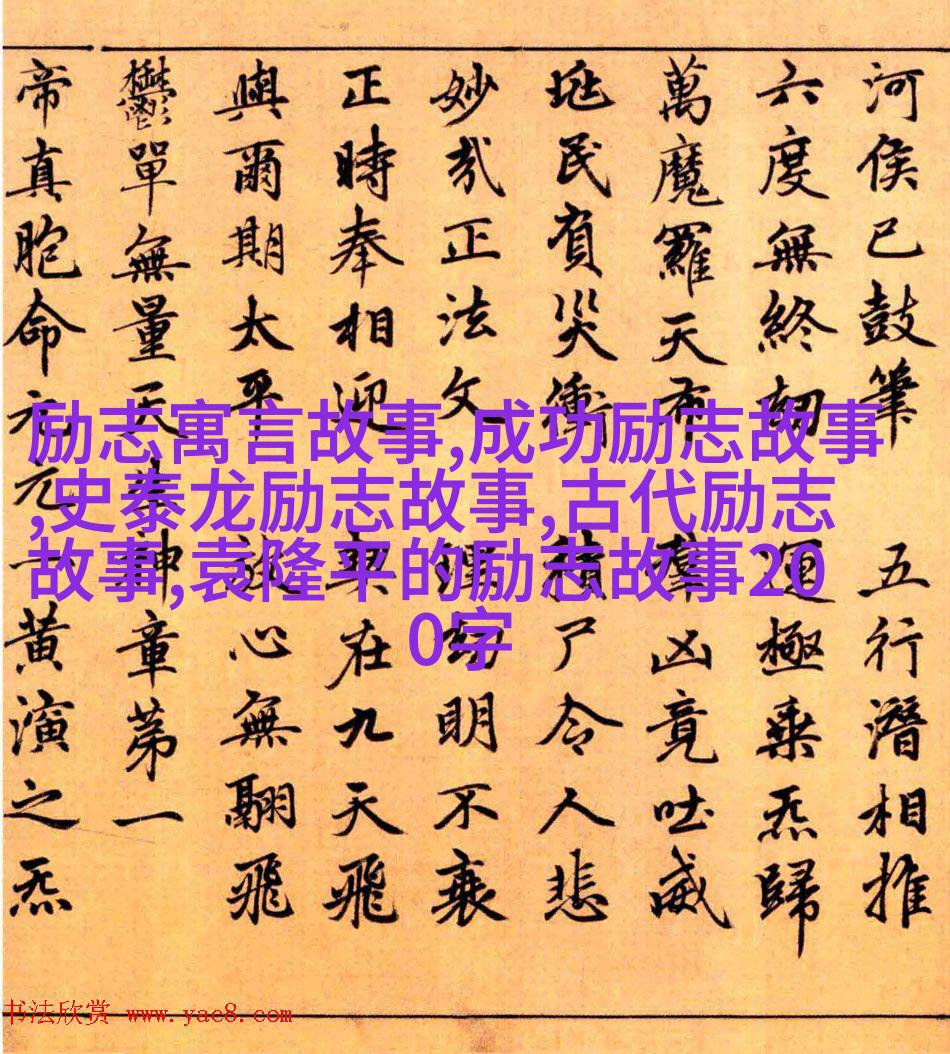 河侯已鼓筆 五行潛相推
六度無終劫 運極乘炁歸
萬魔羅天布 羣凶竟吐威
民有災衝 積尸令人悲
妙哉正法文 劫明不衰
正時奉相迎 在九天飛
與爾期太平 心無翮飛
鬱單無量天 神章第一
帝真胞命元元一黃演之炁
励志寓言故事,成功励志故事
,史泰龙励志故事,古代励志
故事,袁隆平的励志故事20
0字
书法欣赏 www.yac8.com